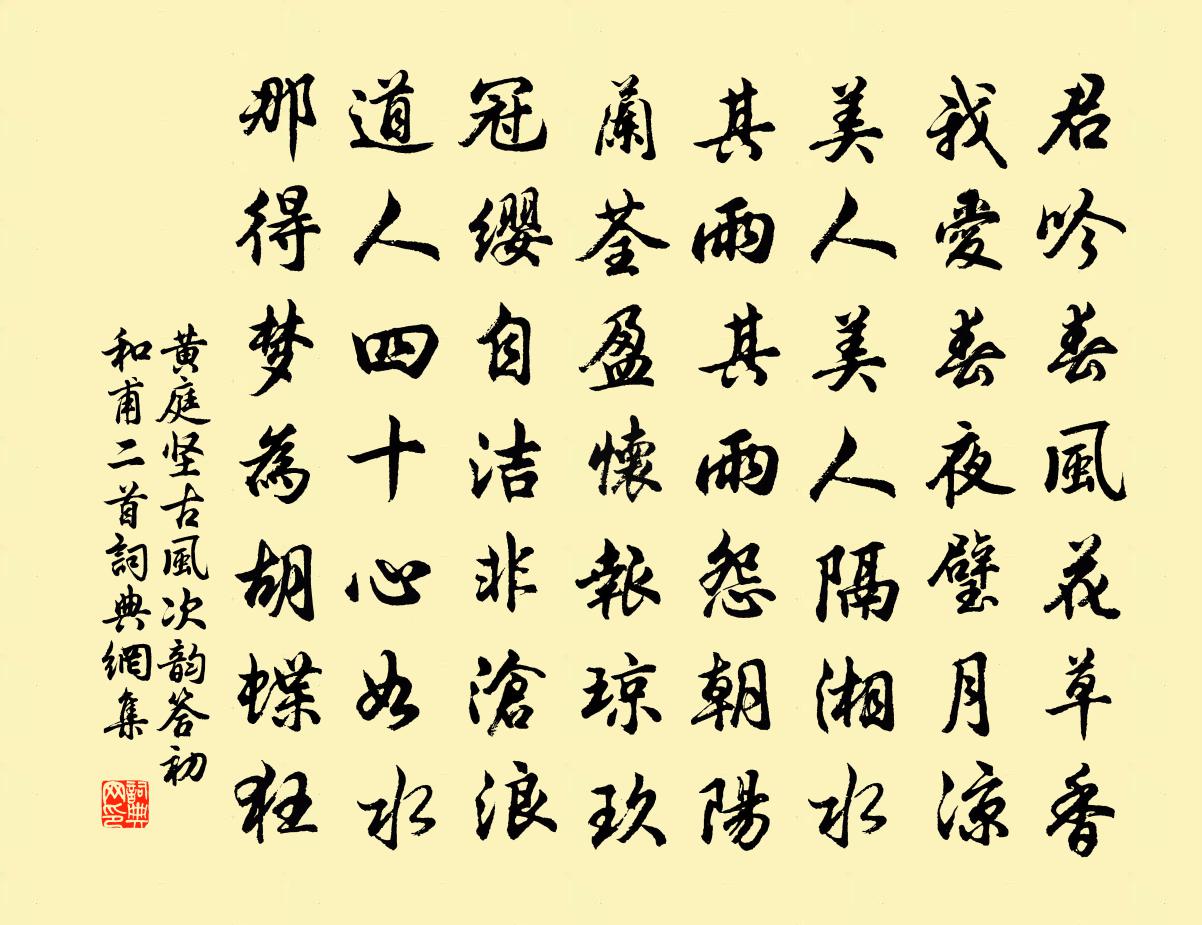 君吟春風花草香
我愛春夜璧月涼
美人美人隔湘水
其雨其雨怨朝陽
蘭荃盈懷報琼玖
冠纓自洁非滄浪
道人四十心如水
那得梦為胡蝶狂
黄庭坚古風次韵答初
和甫二首詞典網集
詞典
网印